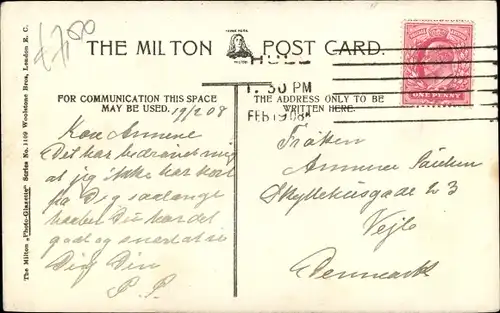 £7,50
THE MILTON POST CARD.
HULL
1.30 PM
FEB 19 08
FOR COMMUNICATION THIS SPACE
MAY BE USED.
THE ADDRESS ONLY TO BE
WRITTEN HERE.
19/2 08
Kær Annine
Det har bedrøvet mig
at jeg ikke har hørt
fra Dig saalænge
haaber Du har det
godt og snart at se
Dig Din
P. P.
Frøken
Annine
3
Vejle
Denmark
ONE PENNY
The Milton "Photo-Glazette" Series No. 1109 Woolstone Bros, London E. C.